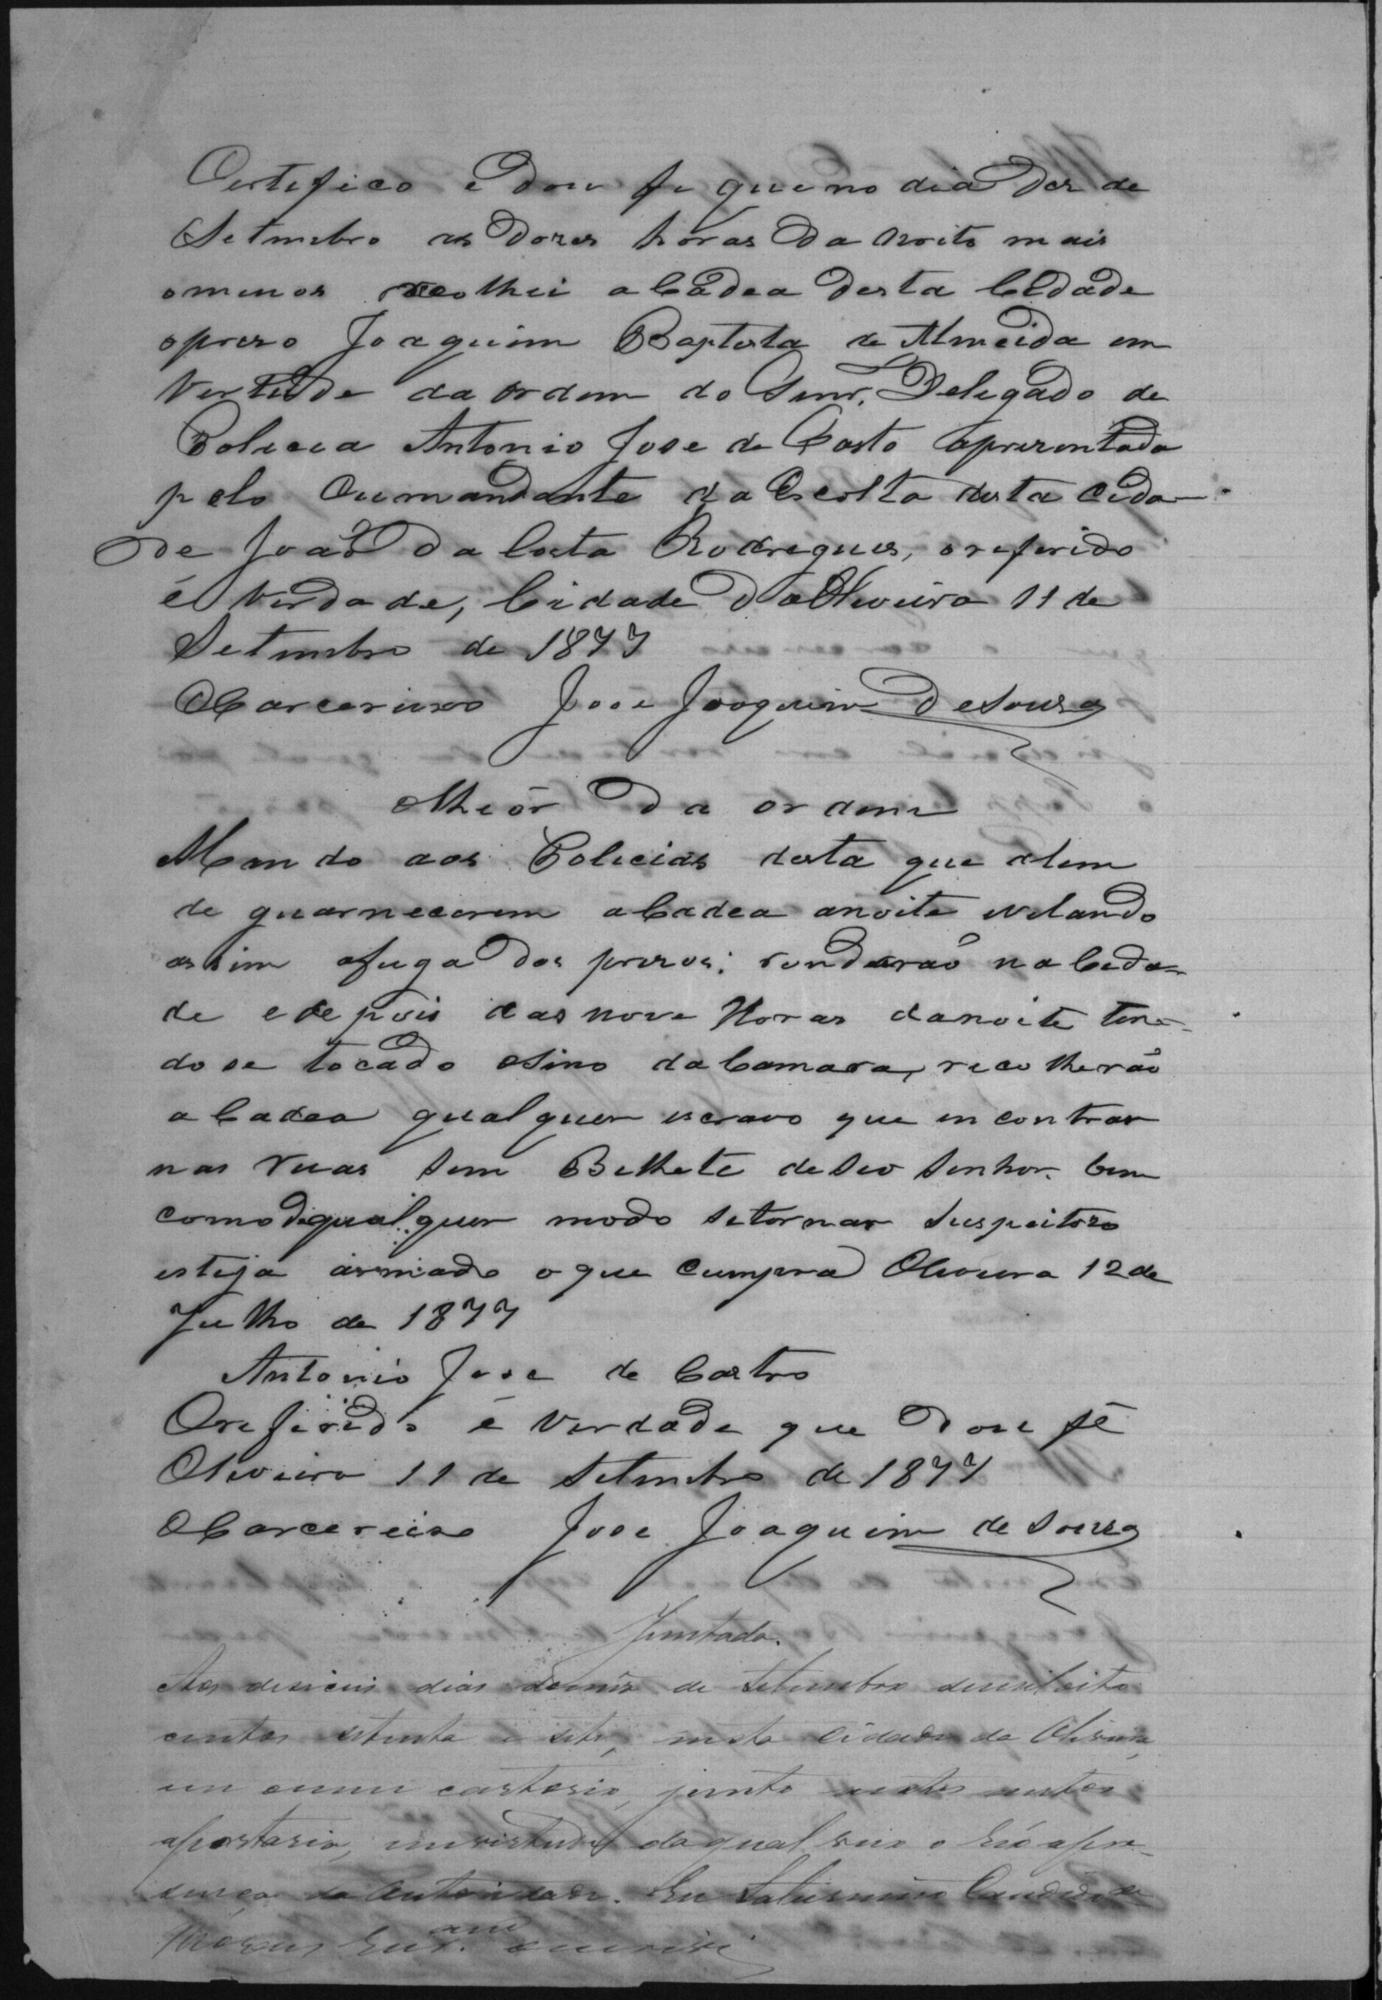 Certefico e dou fe que no dia Des de
Setmebro as Dozes horas Da Noite mais
omenos recolhei a Cadea desta Cidade
oprezo Joaquim Baptesta de Almeida em
Vertude da ordem do Senr. Delegado de
Policia Antonio Jose de Casto aprezentada
pelo Cumandante da Escolta desta Cida-
de João Da Costa Rodregues, o referido
é Verdade, Cidade Da Oliveira 11 de
Setembro de 1877
O Carcereiro Jose Joaquim De Souza
O theôr Da ordem
Mando aos Policias desta que alem
de guarnecerem a Cadea anoite evetando
assim afuga Dos prezos; rondarão na Cida-
de e depois das nove Horas danoite ten-
dose tocado osino da Camara, recolherão
a Cadea qualquer escravo que encontrar
nas Ruas sem Belhete de seo Senhor. bem
como de qualquer modo se tornar suspeitozo
esteja armado o que Cumpra Oliveira 12 de
Julho de 1877
Antonio Jose de Castro
Oreferido é Verdade que Dou fé
Oliveira 11 de Setembro de 1877
O Carcereiro Jose Joaquim de Souza
Juntada.
Aos deseceis dias do mês de Setembro de mil oito
centos setenta e sete, nesta cidade da Oliveira,
em o meu cartorio, junto a estes autos
aportaria, em virtude da qual veio o Réo a pre-
sença da Autoridade. Eu Saturnino Candido de